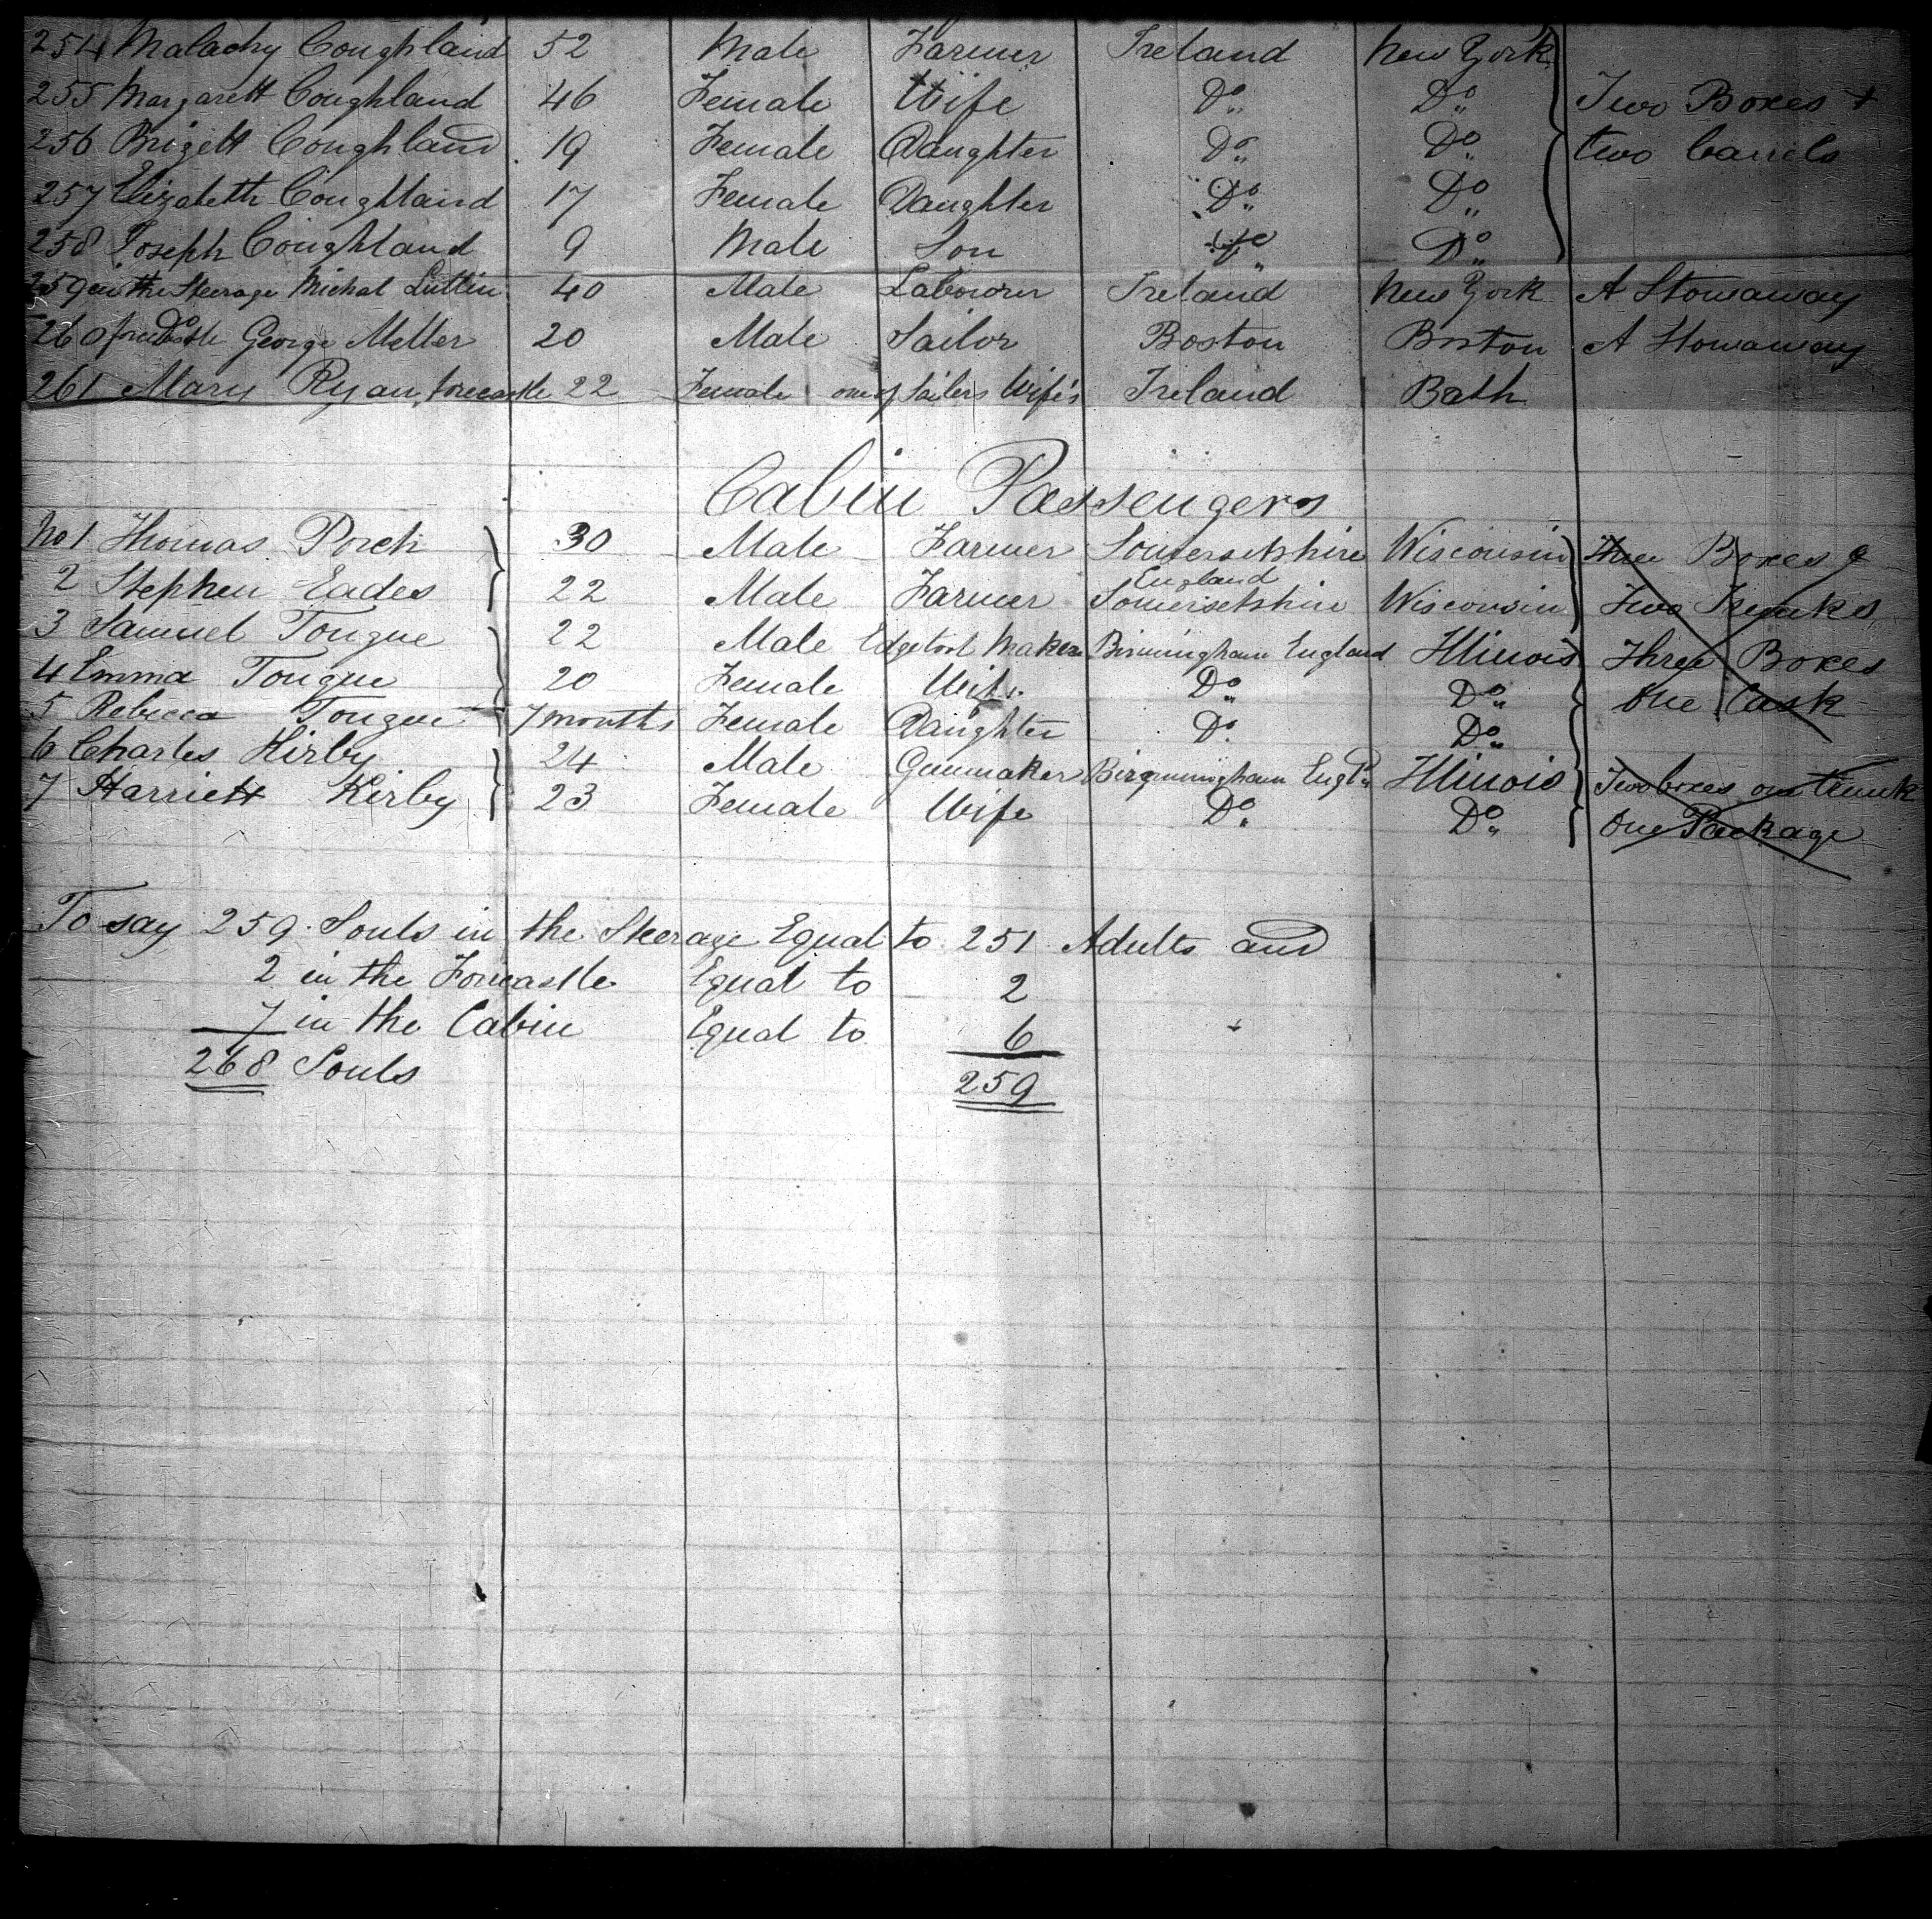 254 Malachy Coughland 52 Male Farmer Ireland New York
255 Margarett Coughland 46 Female Wife Do Do Two Boxes +
256 Brigett Coughland 19 Female Daughter Do Do two barrils
257 Elizabeth Coughland 17 Female Daughter Do Do
258 Joseph Coughland 9 Male Son Do Do
259 in the Steerage Michal 40 Male Labourer Ireland New York A Stowaway
260 Do George Meller 20 Male Sailor Boston Boston A Stowaway
261 Mary Ryan forecastle 22 Female one of Sailers Wife's Ireland Bath
Cabin Passengers
No 1 Thomas Porch 30 Male Farmer Somersetshire Wisconsin Three Boxes &
England
2 Stephen Eades 22 Male Farmer Somersetshire Wisconsin Two Trunks
3 Samuel Tongue 22 Male Edgetool Maker Birmingham England Illinois Three Boxes
4 Emma Tongue 20 Female Wife Do Do One Cask
5 Rebecca Tongue 7 months Female Daughter Do Do
6 Charles Kirby 24 Male Gunmaker Birgmingham Engld Illinois Two boxes one trunk
7 Harriett Kirby 23 Female Wife Do Do One Package
To say 259 Souls in the Steerage Equal to 251 Adults and
2 in the Forecastle Equal to 2
7 in the Cabin Equal to 6
268 Souls 259